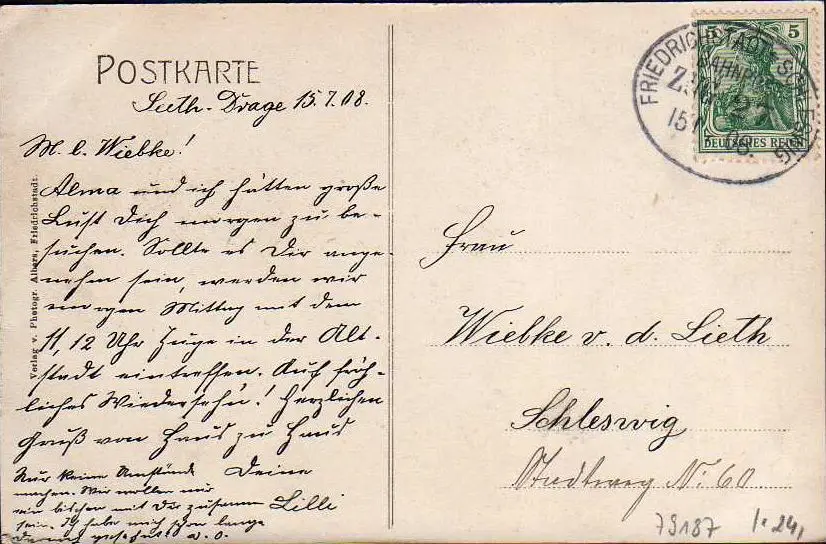 POSTKARTE
Seeth-Drage 15.7.08.
M. l. Wiebke!
Alma und ich hätten große
Lust Dich morgen zu be-
suchen. Sollte es Dir ange-
nehm sein, werden wir
morgen Mittag mit dem
11,12 Uhr Zuge in der Alt-
stadt eintreffen. Auf fröh-
liches Wiedersehn! Herzlichen
Gruß von Haus zu Haus
Deine
Lilli
Nur keine Umstände
machen. Wir wollen nur
ein bischen mit Dir zusamm
sein. Ich habe mich schon lange
danach gesehnt
Verlag v. Photogr. Albers, Friedrichstadt.
FRIEDRICHSTADT-SCHLESWIG
BAHNPOST
ZUG 2
15 7 08.
5 5
DEUTSCHES REICH
Frau
Wiebke v. d. Lieth
Schleswig
Stadtweg No. 60
79187 1.24,